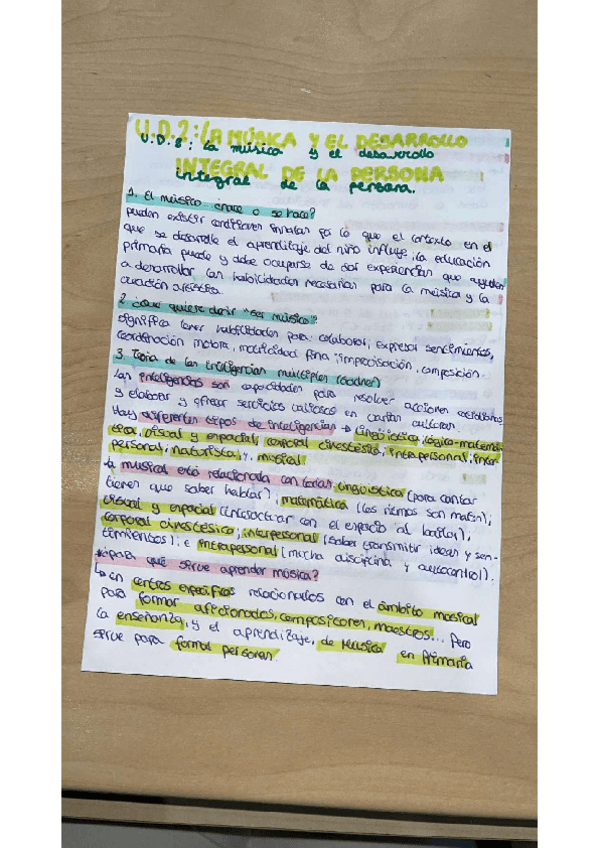 U.D.2: LA MÚSICA Y EL DESARROLLO
U.D.8: la música y el desarrollo
INTEGRAL DE LA PERSONA
integral de la persona.
1. El músico ¿nace o se hace?
pueden existir condiciones innatas por lo que el contexto en el
que se desarrolle el aprendizaje del niño influye. la educación
primaria puede y debe ocuparse de dar experiencias que ayuden
a desarrollar las habilidades necesarias para la música y la
creación artística.
2. ¿Qué quiere decir "ser músico"?
significa tener habilidades para: colaborar, expresar sentimientos,
coordinación motora, motricidad fina, improvisación, composición.
3. Teoría de las inteligencias múltiples (Gadner)
Las inteligencias son capacidades para resolver acciones cotidianas
y elaborar y ofrecer servicios valiosos en varias culturas.
Hay diferentes tipos de inteligencias → lingüística, lógico-matemá-
tica, visual y espacial, corporal cinestésica, intrapersonal, inter-
personal, naturista, y musical
la musical está relacionada con todas: lingüística (para cantar
tienen que saber hablar); matemática (los ritmos son matem);
visual y espacial (interactuar con el espacio al bailar),
corporal cinestésica; interpersonal (saber transmitir ideas y sen-
timientos); e intrapersonal (mucha disciplina y autocontrol).
¿para qué sirve aprender música?
↳ en centros específicos relacionados con el ámbito musical
para formar aficionados, compositores, maestros... Pero
la enseñanza, y el aprendizaje, de Música en Primaria
sirve para formar personas.